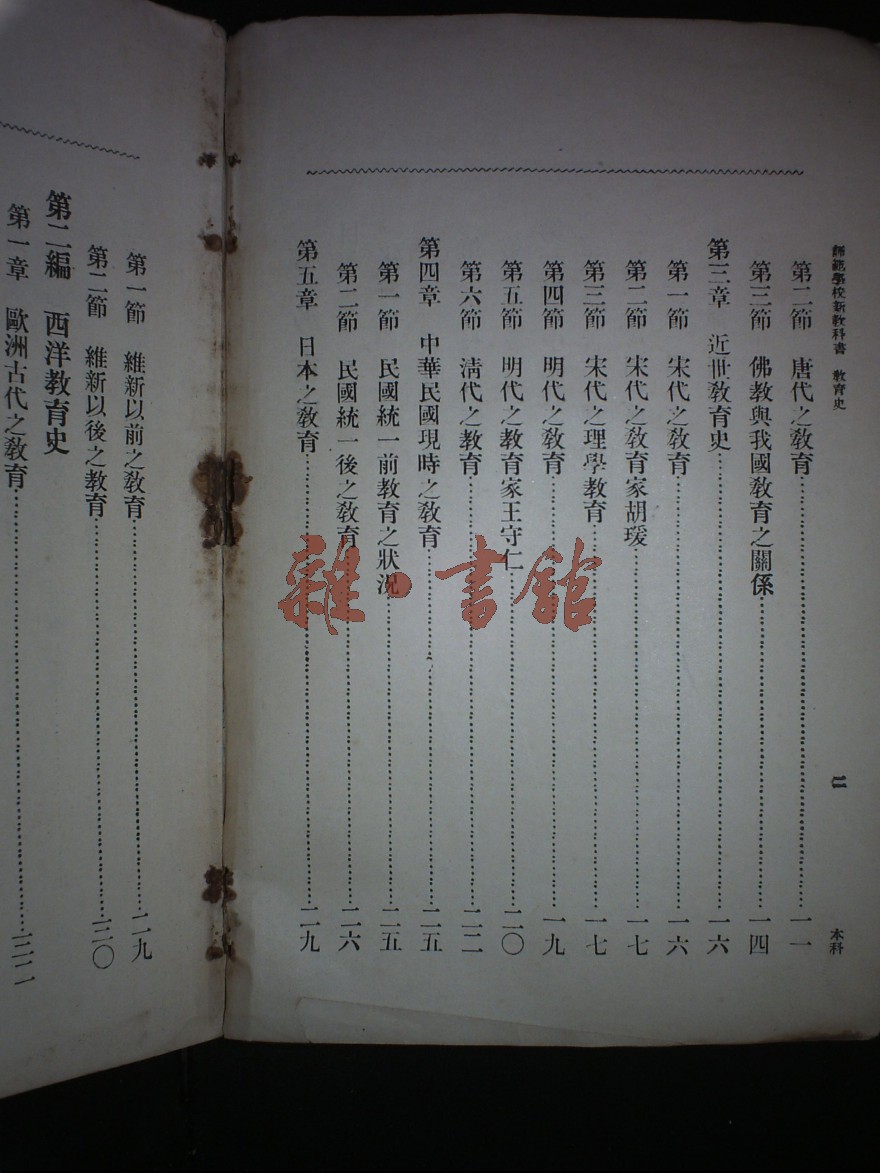 師範學校新教科書 教育史 二 本科
第二節 唐代之教育 一一
第三節 佛教與我國教育之關係 一四
第三章 近世教育史 一六
第一節 宋代之教育 一六
第二節 宋代之教育家胡瑗 一七
第三節 宋代之理學教育 一七
第四節 明代之教育 一九
第五節 明代之教育家王守仁 二〇
第六節 淸代之教育 二二
第四章 中華民國現時之教育 二五
第一節 民國統一前教育之狀況 二五
第二節 民國統一後之教育 二六
第五章 日本之教育 二九
第一節 維新以前之教育 二九
第二節 維新以後之教育 三〇
第二編 西洋教育史
第一章 歐洲古代之教育 三二
雜·書館